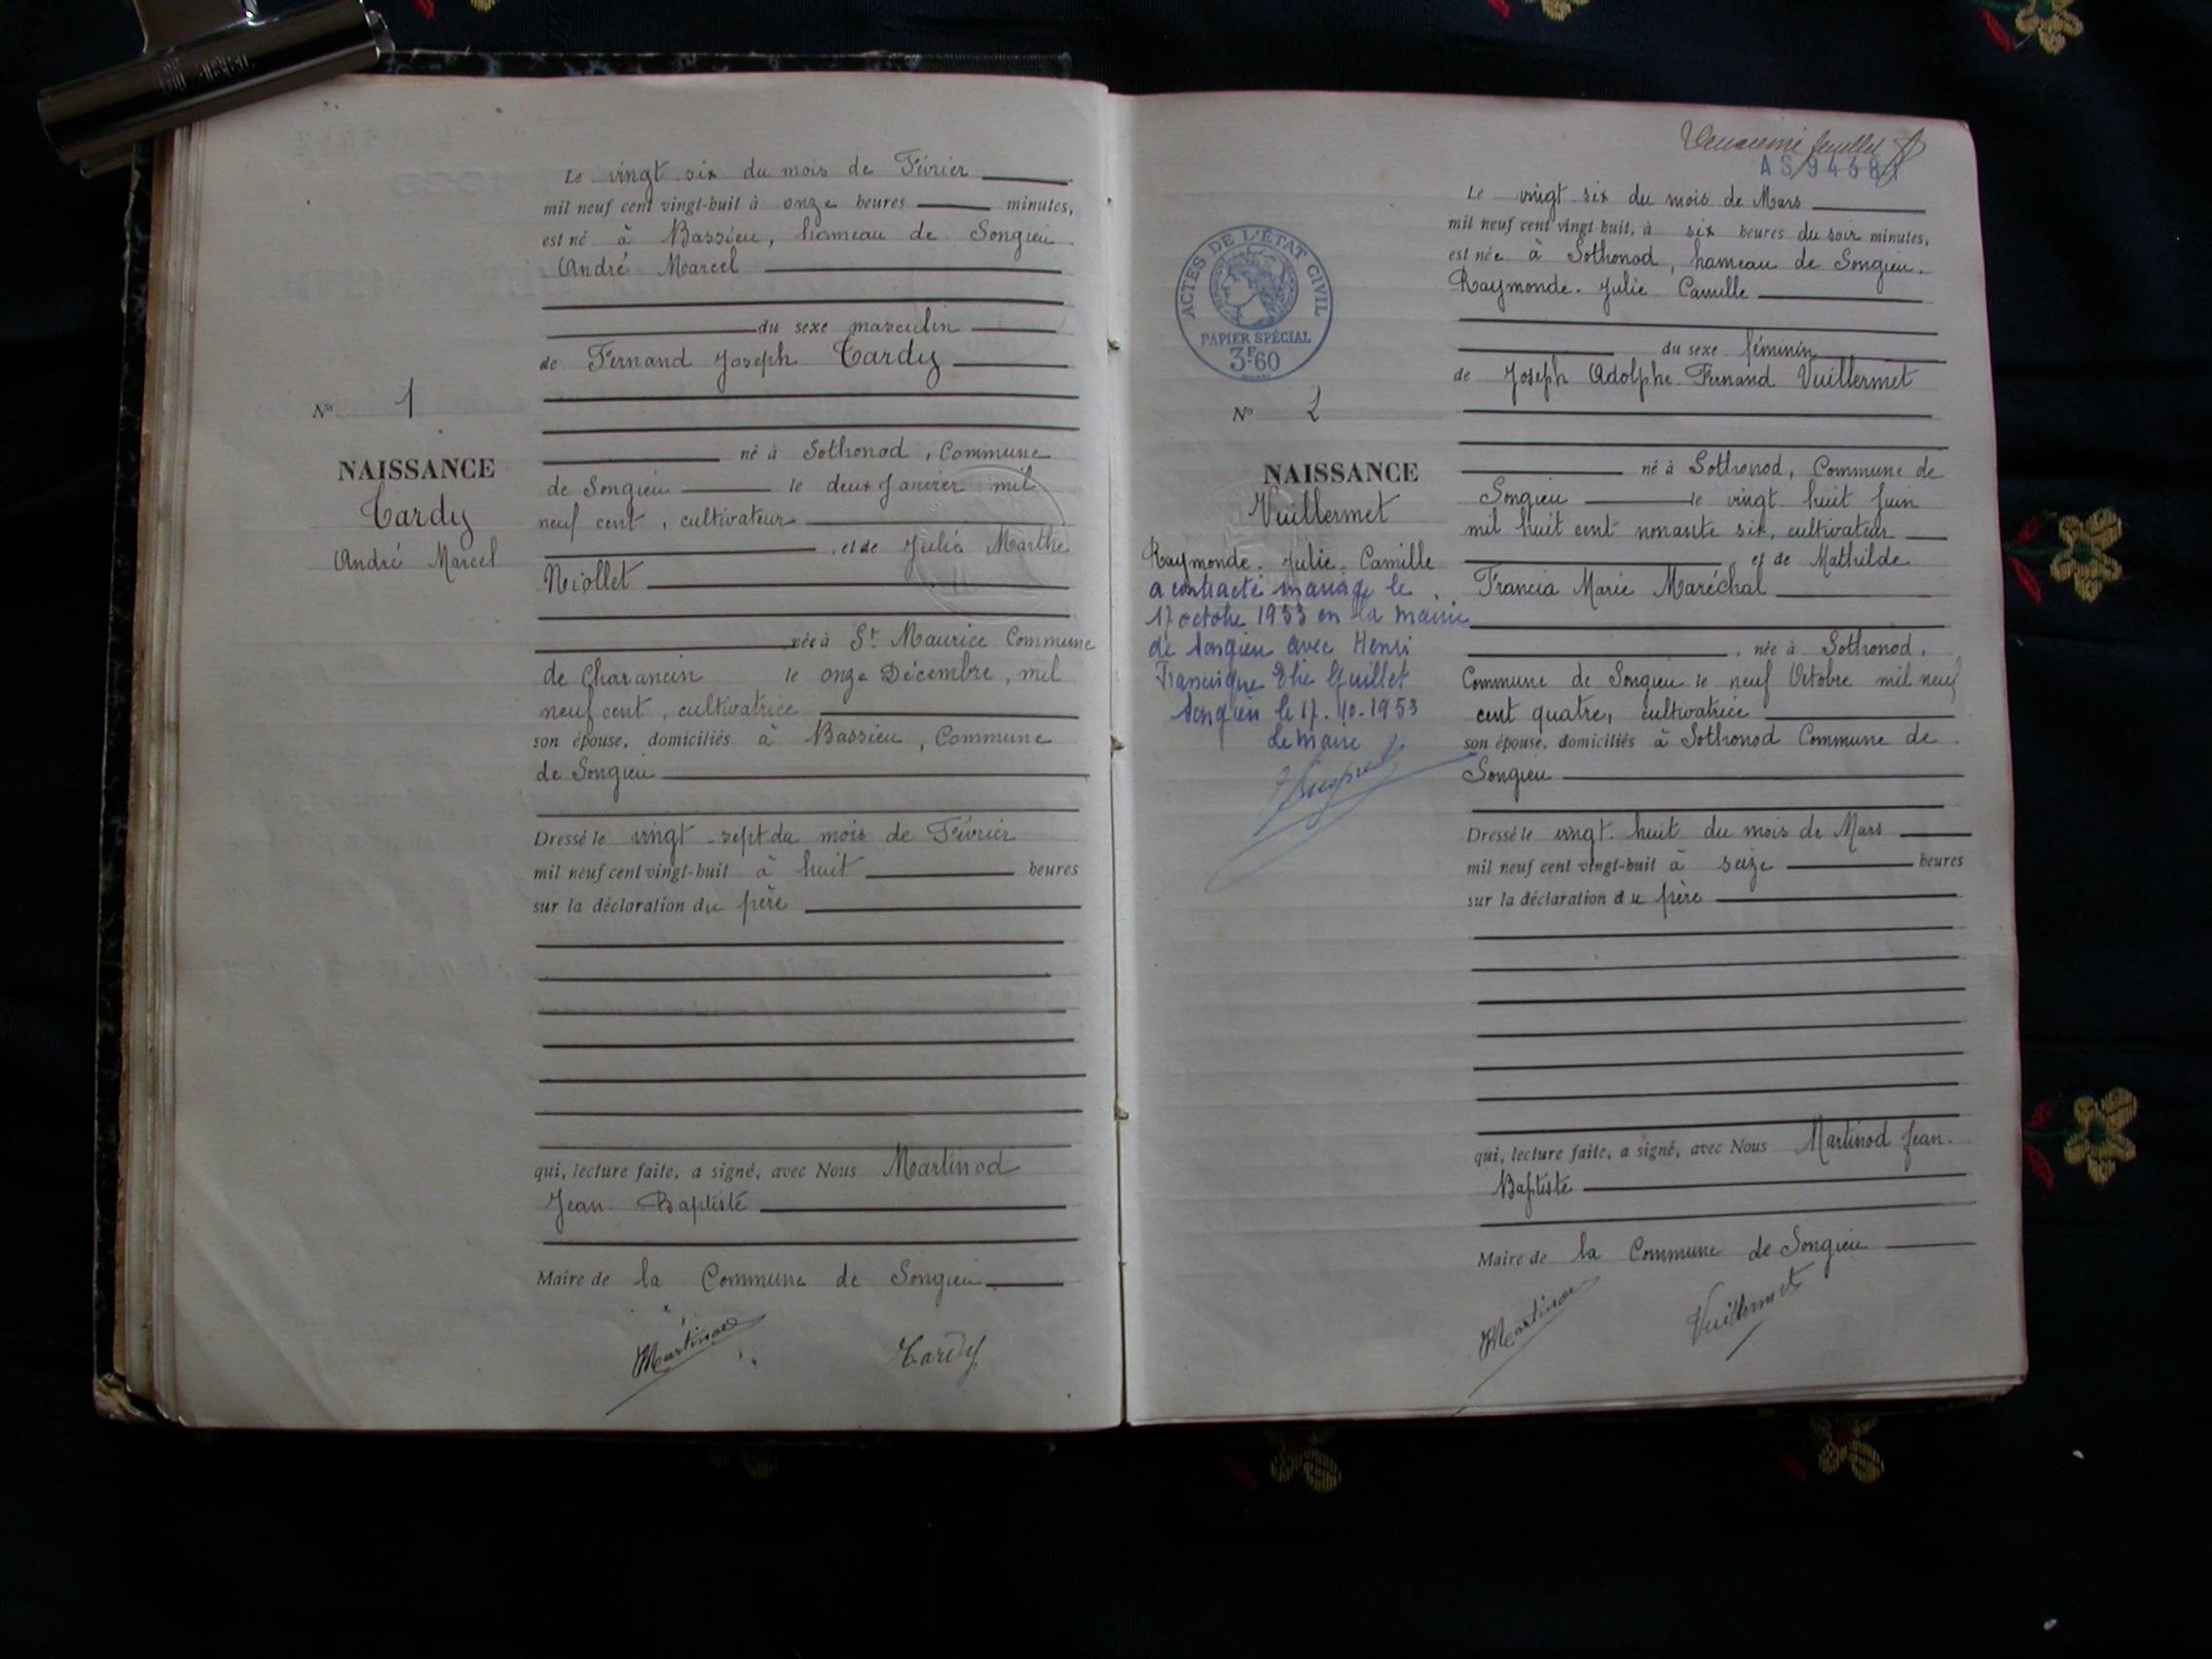 Le vingt six du mois de Février
mil neuf cent vingt-huit à onze heures minutes,
est né à Bassieu, hameau de Songieu
André Marcel
du sexe masculin
de Fernand Joseph Tardy
né à Sothonod, Commune
de Songieu le deux Janvier mil
neuf cent, cultivateur
, et de Julia Marthe
Niollet
née à St Maurice Commune
de Charancin le onze Décembre, mil
neuf cent, cultivatrice
son épouse, domiciliés à Bassieu, Commune
de Songieu
Dressé le vingt-sept du mois de Février
mil neuf cent vingt-huit à huit heures
sur la déclaration du père
qui, lecture faite, a signé, avec Nous Martinod
Jean-Baptiste
Maire de la Commune de Songieu
Martinod Tardy
No 1
NAISSANCE
Tardy
André Marcel
feuillet
Le vingt-six du mois de Mars
mil neuf cent vingt-huit, à six heures du soir minutes,
est née à Sothonod, hameau de Songieu.
Raymonde. Julie. Camille
du sexe féminin
de Joseph Adolphe Fernand Vuillermet
né à Sothonod, Commune de
Songieu le vingt huit Juin
mil huit cent nonante six, cultivateur
et de Mathilde
Francia Marie Maréchal
, née à Sothonod,
Commune de Songieu le neuf Octobre mil neuf
cent quatre, cultivatrice
son épouse, domiciliés à Sothonod Commune de
Songieu
Dressé le vingt-huit du mois de Mars
mil neuf cent vingt-huit à seize heures
sur la déclaration du père
qui, lecture faite, a signé, avec Nous Martinod Jean-
Baptiste
Maire de la Commune de Songieu
Martinod Vuillermet
ACTES DE L'ÉTAT CIVIL
PAPIER SPÉCIAL
3F60
No 2
NAISSANCE
Vuillermet
Raymonde. Julie. Camille
a contracté mariage le
17 octobre 1953 en la mairie
de Songieu avec Henri
Francisque Elie Guillet
Songieu le 17-10-1953
Le Maire